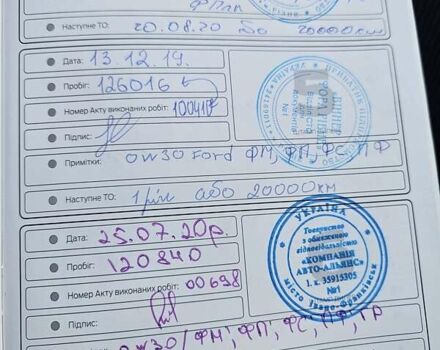 Наступне ТО: 20.08.20 або 20000км
Дата: 13.12.19.
Пробіг: 126016
Номер Акту виконаних робіт: 100410
Підпис:
Примітки: 0W30 Ford ФМ, ФП, ФС, ПФ
Наступне ТО: 1 рік або 20000 км
Дата: 25.07.20р.
Пробіг: 120840
Номер Акту виконаних робіт: 00698
Підпис:
0W30/ФМ, ФП, ФС, ПФ, ГР
УКРАЇНА
Товариство
з обмеженою
відповідальністю
«КОМПАНІЯ
АВТО-АЛЬЯНС»
і. к. 35915305
№1
місто Івано-Франківськ